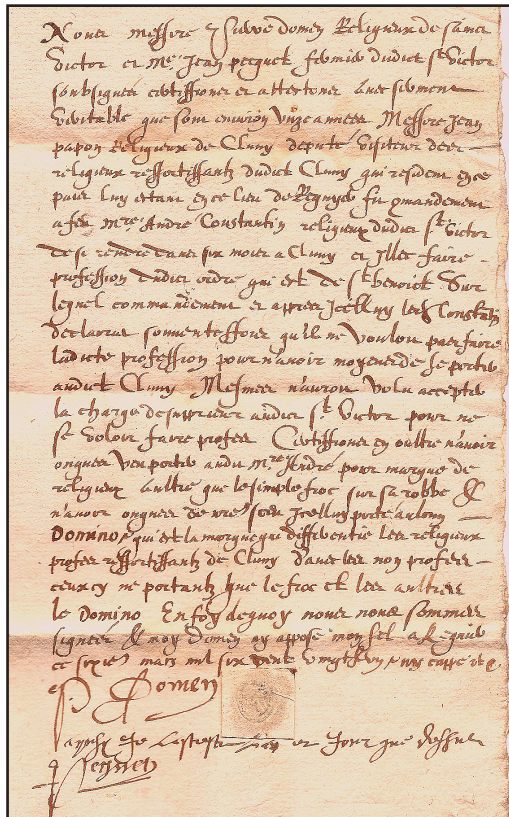 Nous messire Pierre Domen Religieux de sainct
Victor et Me. Jean pecquet fermier dudict St Victor
soubsignes certiffiones et attestones avec serment
veritable que sont environ unze annees Messire Jean
papon Religieux de Cluny deputé visiteur des
religieux ressortissantz dudict Cluny qui resident en ce
pais luy estant en ce lieu de Regnye fit commandement
a feu Mre. André Constantin religieux dudict St Victor
de si rendre dans six mois a Cluny et illec faire
profession dudict ordre qui est de St benoict Sur
lequel commandement et apres icelluy led Constantin
declara souventeffois qu'il ne vouloit pas faire
ladicte profession pour n'avoir moyens de se porter
audict Cluny Mesmes n'auroit volu accepter
la charge de supprieur audict St Victor pour ne
se voloir faire profes Certiffiones en oultre n'avoir
onques veu porter audit Mre André pour marque de
religieux aultre que le simple froc sur sa robbe &
n'avoir onques de ... icelluy porté aulcun
Domino, qui est la marque qui differentie les religieux
profes ressortissantz de Cluny d'avec les non profes
ceux cy ne portantz que le froc et les aultres
le Domino En foy de quoy nous nous sommes
signes & moy Domen ay apposé mon sel a Regnie
ce ... mars mil six cent vingt
P. Domen
ainsin je l'atteste ... et jour que dessus
Pecquet